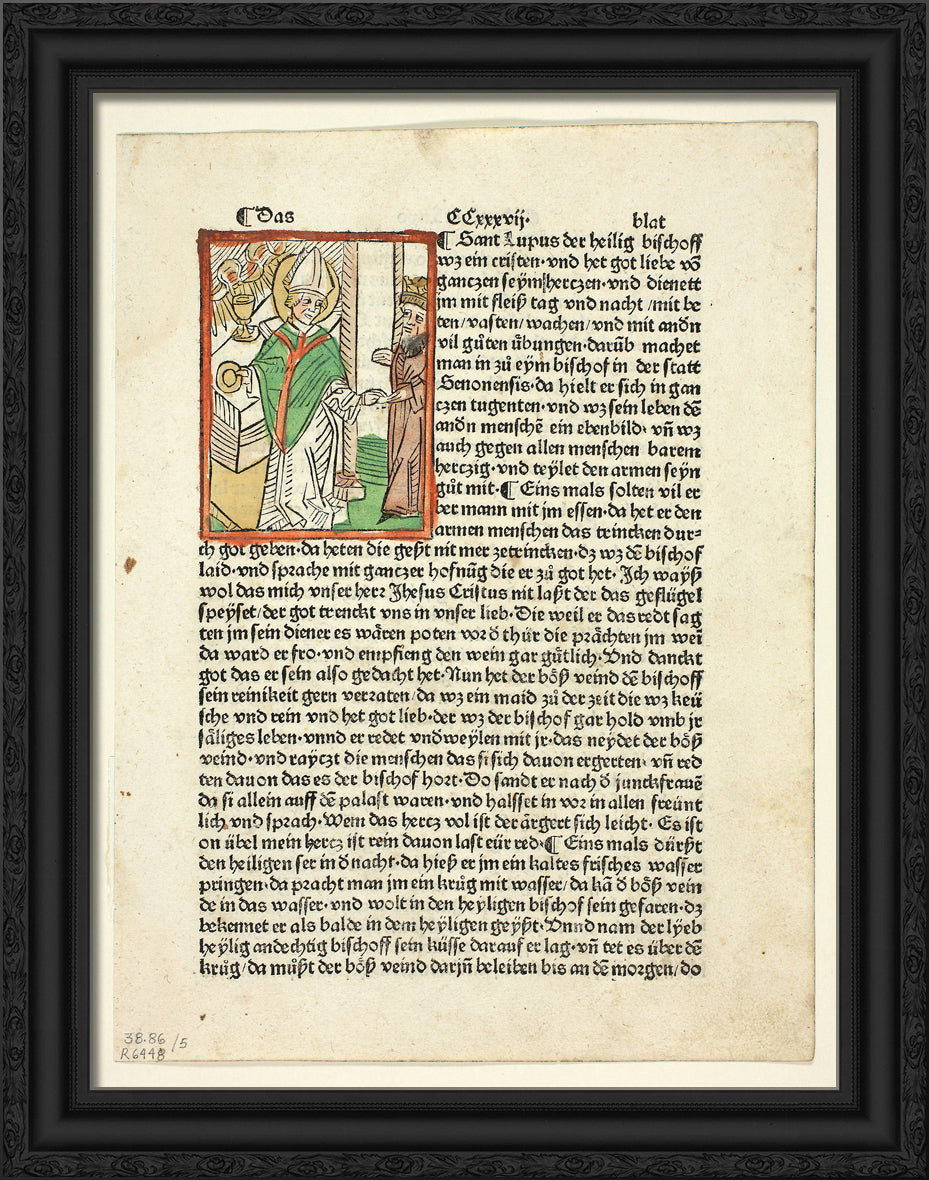 ¶ Das CCxxxvij· blat
¶ Sant Lupus der heilig bischoff
wz ein cristen· vnd het got liebe vō
ganczen seym herczen· vnd dienett
jm mit fleiß tag vnd nacht / mit be
ten / vasten / wachen / vnd mit andn̄
vil gůten übungen· darūb machet
man in zů eym bischof in der statt
Senonensis· da hielt er sich in gan
czen tugenten· vnd wz sein leben dē
andn̄ menschē ein ebenbild· vn̄ wz
auch gegen allen menschen barem
herczig· vnd teylet den armen seyn
gůt mit· ¶ Eins mals solten vil er
ber mann mit jm essen· da het er den
armen menschen das trincken dur⸗
ch got geben· da heten die geßt nit mer zetrincken· dz wz dē bischof
laid· vnd sprache mit ganczer hofnūg die er zů got het· Jch wayß
wol das mich vnser herz Jhesus Cristus nit laßt der das geflügel
speyset / der got trenckt vns in vnser lieb· Die weil er das redt sag
ten jm sein diener es wären poten vor d̄ thür die prächten jm wei
da ward er fro· vnd empfieng den wein gar gůtlich· Vnd danckt
got das er sein also gedacht het· Nun het der böß veind dē bischoff
sein reinikeit gern verraten / da wz ein maid zů der zeit die wz keü
sche vnd rein vnd het got lieb· der wz der bischof gar hold vmb jr
säliges leben· vnnd er redet vndweylen mit jr· das neydet der böß
veind· vnd rayczt die menschen das si sich dauon ergerten· vn̄ red
ten dauon das es der bischof hort· Do sandt er nach d̄ junckfrauē
da si allein auff dē palast waren· vnd halsset in vor in allen freünt
lich vnd sprach· Wem das hercz vol ist der ärgert sich leicht· Es ist
on übel mein hercz ist rein dauon last eür red· ¶ Eins mals dürßt
den heiligen ser in d̄ nacht· da hieß er jm ein kaltes frisches wasser
pringen· da pracht man jm ein krůg mit wasser / da kā d̄ böß vein
de in das wasser· vnd wolt in den heyligen bischof sein gefaren· dz
bekennet er als balde in dem heyligen geyßt· Vnnd nam der lyeb
heylig andechtig bischoff sein küsse darauf er lag· vn̄ tet es über dē
krůg / da můßt der böß veind darjn̄ beleiben bis an dē morgen / do
38.86 /5
R6448